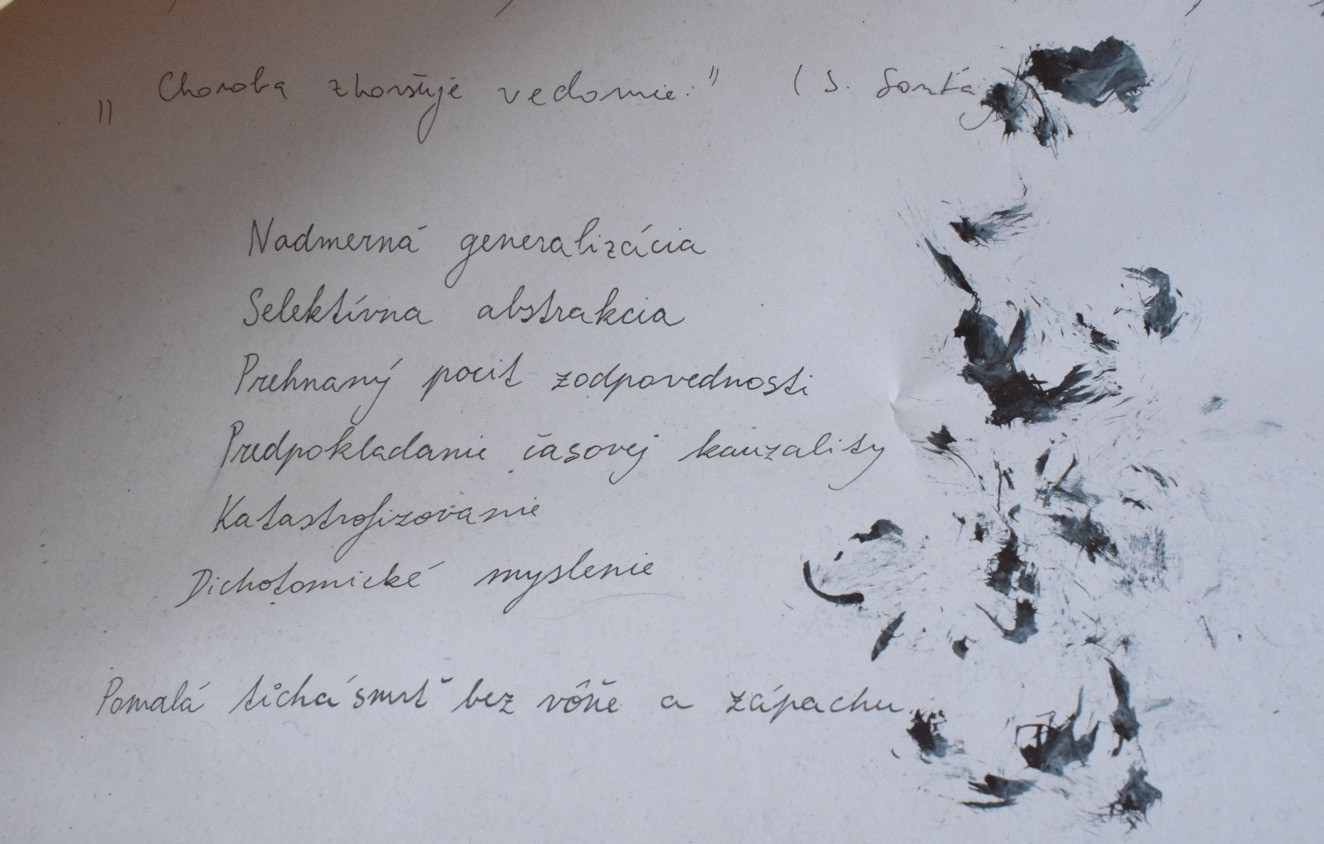 „Choroba zhoršuje vedomie.“ (S. Sontá
Nadmerná generalizácia
Selektívna abstrakcia
Prehnaný pocit zodpovednosti
Predpokladanie časovej kauzality
Katastrofizovanie
Dichotomické myslenie
Pomalá tichá smrť bez vône a zápachu.